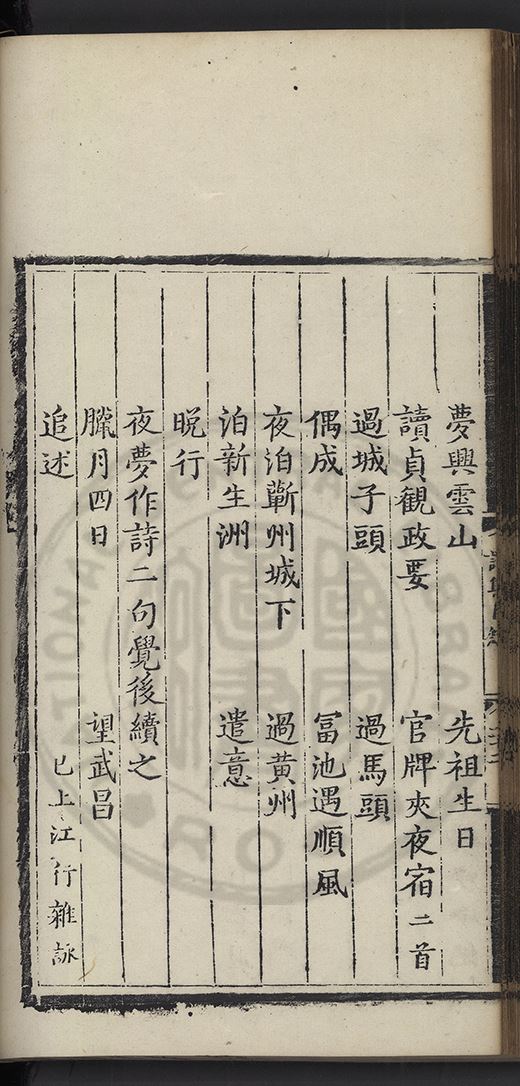 夢興雲山　先祖生日
讀貞觀政要　官牌夾夜宿二首
過城子頭　過馬頭
偶成　富池遇順風
夜泊蘄州城下　過黃州
泊新生洲　遣意
晩行
夜夢作詩二句覺後續之
臘月四日　望武昌
追述　已上江行雜詠